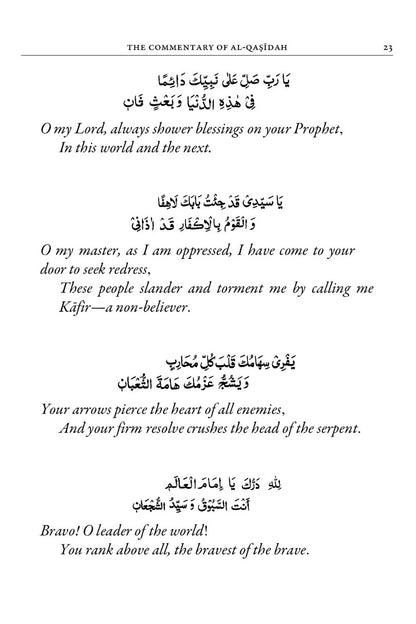 THE COMMENTARY OF AL-QAṢĪDAH 23
يَا رَبِّ صَلِّ عَلٰى نَبِيِّكَ دَائِمًا
فِيْ هٰذِهِ الدُّنْيَا وَ بَعْثٍ ثَانٖ
O my Lord, always shower blessings on your Prophet,
In this world and the next.
يَا سَيِّدِيْ قَدْ جِئْتُ بَابَكَ لَاهِفًا
وَ الْقَوْمُ بِالْاِكْفَارِ قَدْ اٰذَانِيْ
O my master, as I am oppressed, I have come to your
door to seek redress,
These people slander and torment me by calling me
Kāfir—a non-believer.
يَفْرِيْ سِهَامُكَ قَلْبَ كُلِّ مُحَارِبٍ
وَ يَشُجُّ عَزْمُكَ هَامَةَ الثُّعْبَانٖ
Your arrows pierce the heart of all enemies,
And your firm resolve crushes the head of the serpent.
لِلّٰهِ دَرُّكَ يَا اِمَامَ الْعَالَمِ
أَنْتَ السَّبُوْقُ وَ سَيِّدُ الشُّجْعَانٖ
Bravo! O leader of the world!
You rank above all, the bravest of the brave.